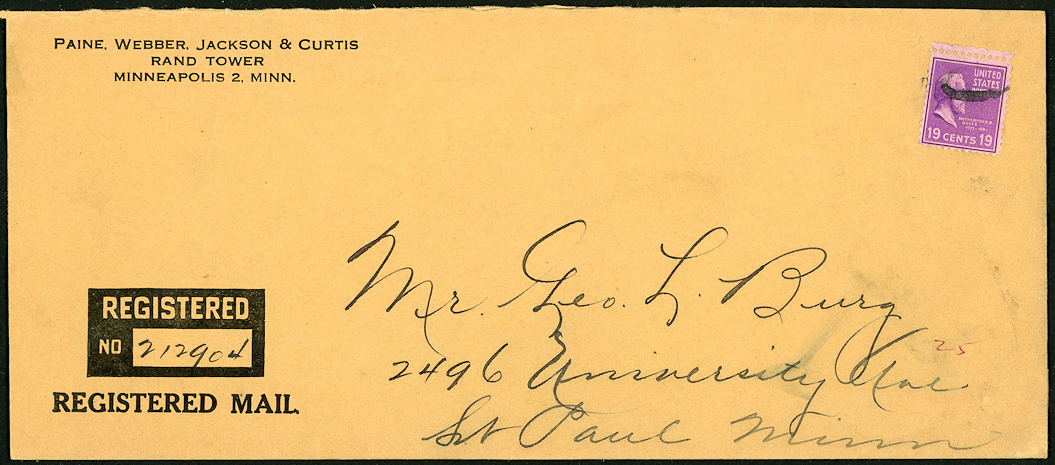 PAINE, WEBBER, JACKSON & CURTIS
RAND TOWER
MINNEAPOLIS 2, MINN.
UNITED
STATES
RUTHERFORD B.
HAYES
19 CENTS 19
Mr. Geo. L. Burg
25
2496 University Ave
St Paul Minn
REGISTERED
NO 212904
REGISTERED MAIL.